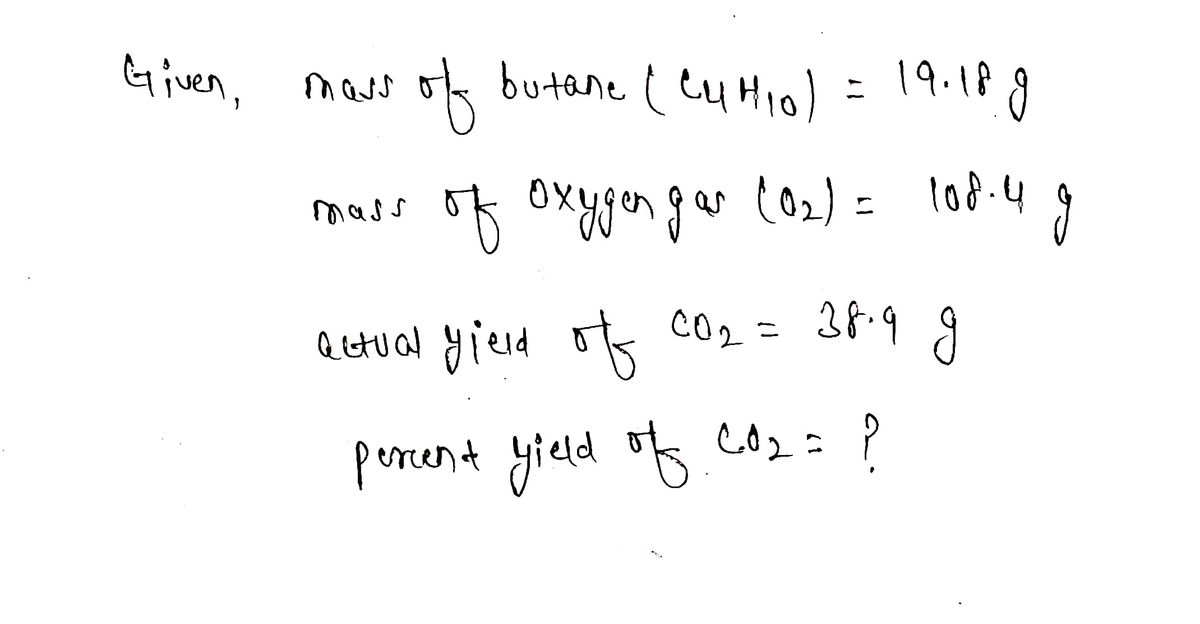 Given, mass of butane (C4H10) = 19.18 g
mass of oxygen gas (O2) = 108.4 g
actual yield of CO2 = 38.9 g
percent yield of CO2 = ?